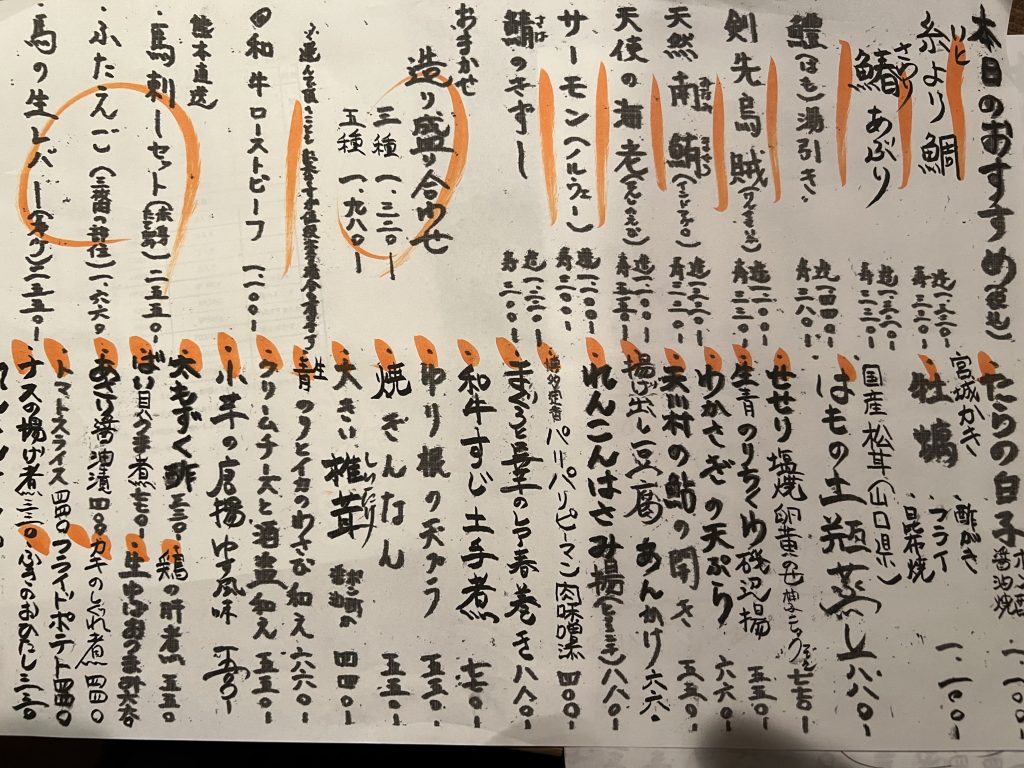 本日のおすすめ
糸より鯛
造一、三二〇ー
寿三三〇ー
鰆あぶり
さわら
造一、三二〇ー
寿三三〇ー
鱧(はも)湯引き
造一、四四〇ー
寿三八〇ー
剣先烏賊
造一、二〇〇ー
寿三三〇ー
天然南鮪
造一、三二〇ー
寿三三〇ー
天使の海老(てんしのえび)
造一、二〇〇ー
寿五五〇ー
サーモン(ノルウェー)
造一、二〇〇ー
寿二〇〇ー
鯖のきずし
さば
造一、二〇〇ー
寿三〇〇ー
おまかせ
造り盛り合わせ
三種 一、三二〇ー
五種 一、九八〇ー
和牛ローストビーフ 一、二〇〇ー
熊本直送
馬刺しセット
二五五〇ー
ふたえご(三番の部位)一、六六〇ー
馬の生レバー
二五五〇ー
たらの白子
醤油焼
一、一〇〇ー
宮城かき
牡蠣
酢がき
フライ
昆布焼
一、一〇〇ー
国産松茸(山口県)
はもの土瓶蒸し 一八八〇ー
せせり塩焼
七七〇ー
生青のりちくわ磯辺揚 五五〇ー
わかさぎの天ぷら 六六〇ー
天川村の鮎の開き 五五〇ー
揚げ出し豆腐あんかけ 六六〇ー
れんこんはさみ揚
八八〇ー
パリパリピーマン肉味噌添 四〇〇ー
まぐろと
の生春巻き 八八〇ー
和牛すじ土手煮 七七〇ー
ゆり根の天プラ 五五〇ー
焼ぎんなん 五五〇ー
大きい椎茸
しいたけ
四四〇ー
生青のりとイカのわさび和え 六六〇ー
クリームチーズと酒盗和え 五五〇ー
小芋の唐揚ゆず風味 五五〇ー
太もずく酢 三三〇ー
鶏の肝煮 五五〇
ばい貝うま煮
生ゆばおつまみ
あさり醤油漬 四四〇
カキのしぐれ煮 四四〇
トマトスライス 四四〇
フライドポテト 四四〇
ナスの揚げ煮 三三〇
ふきのおひたし 三三〇